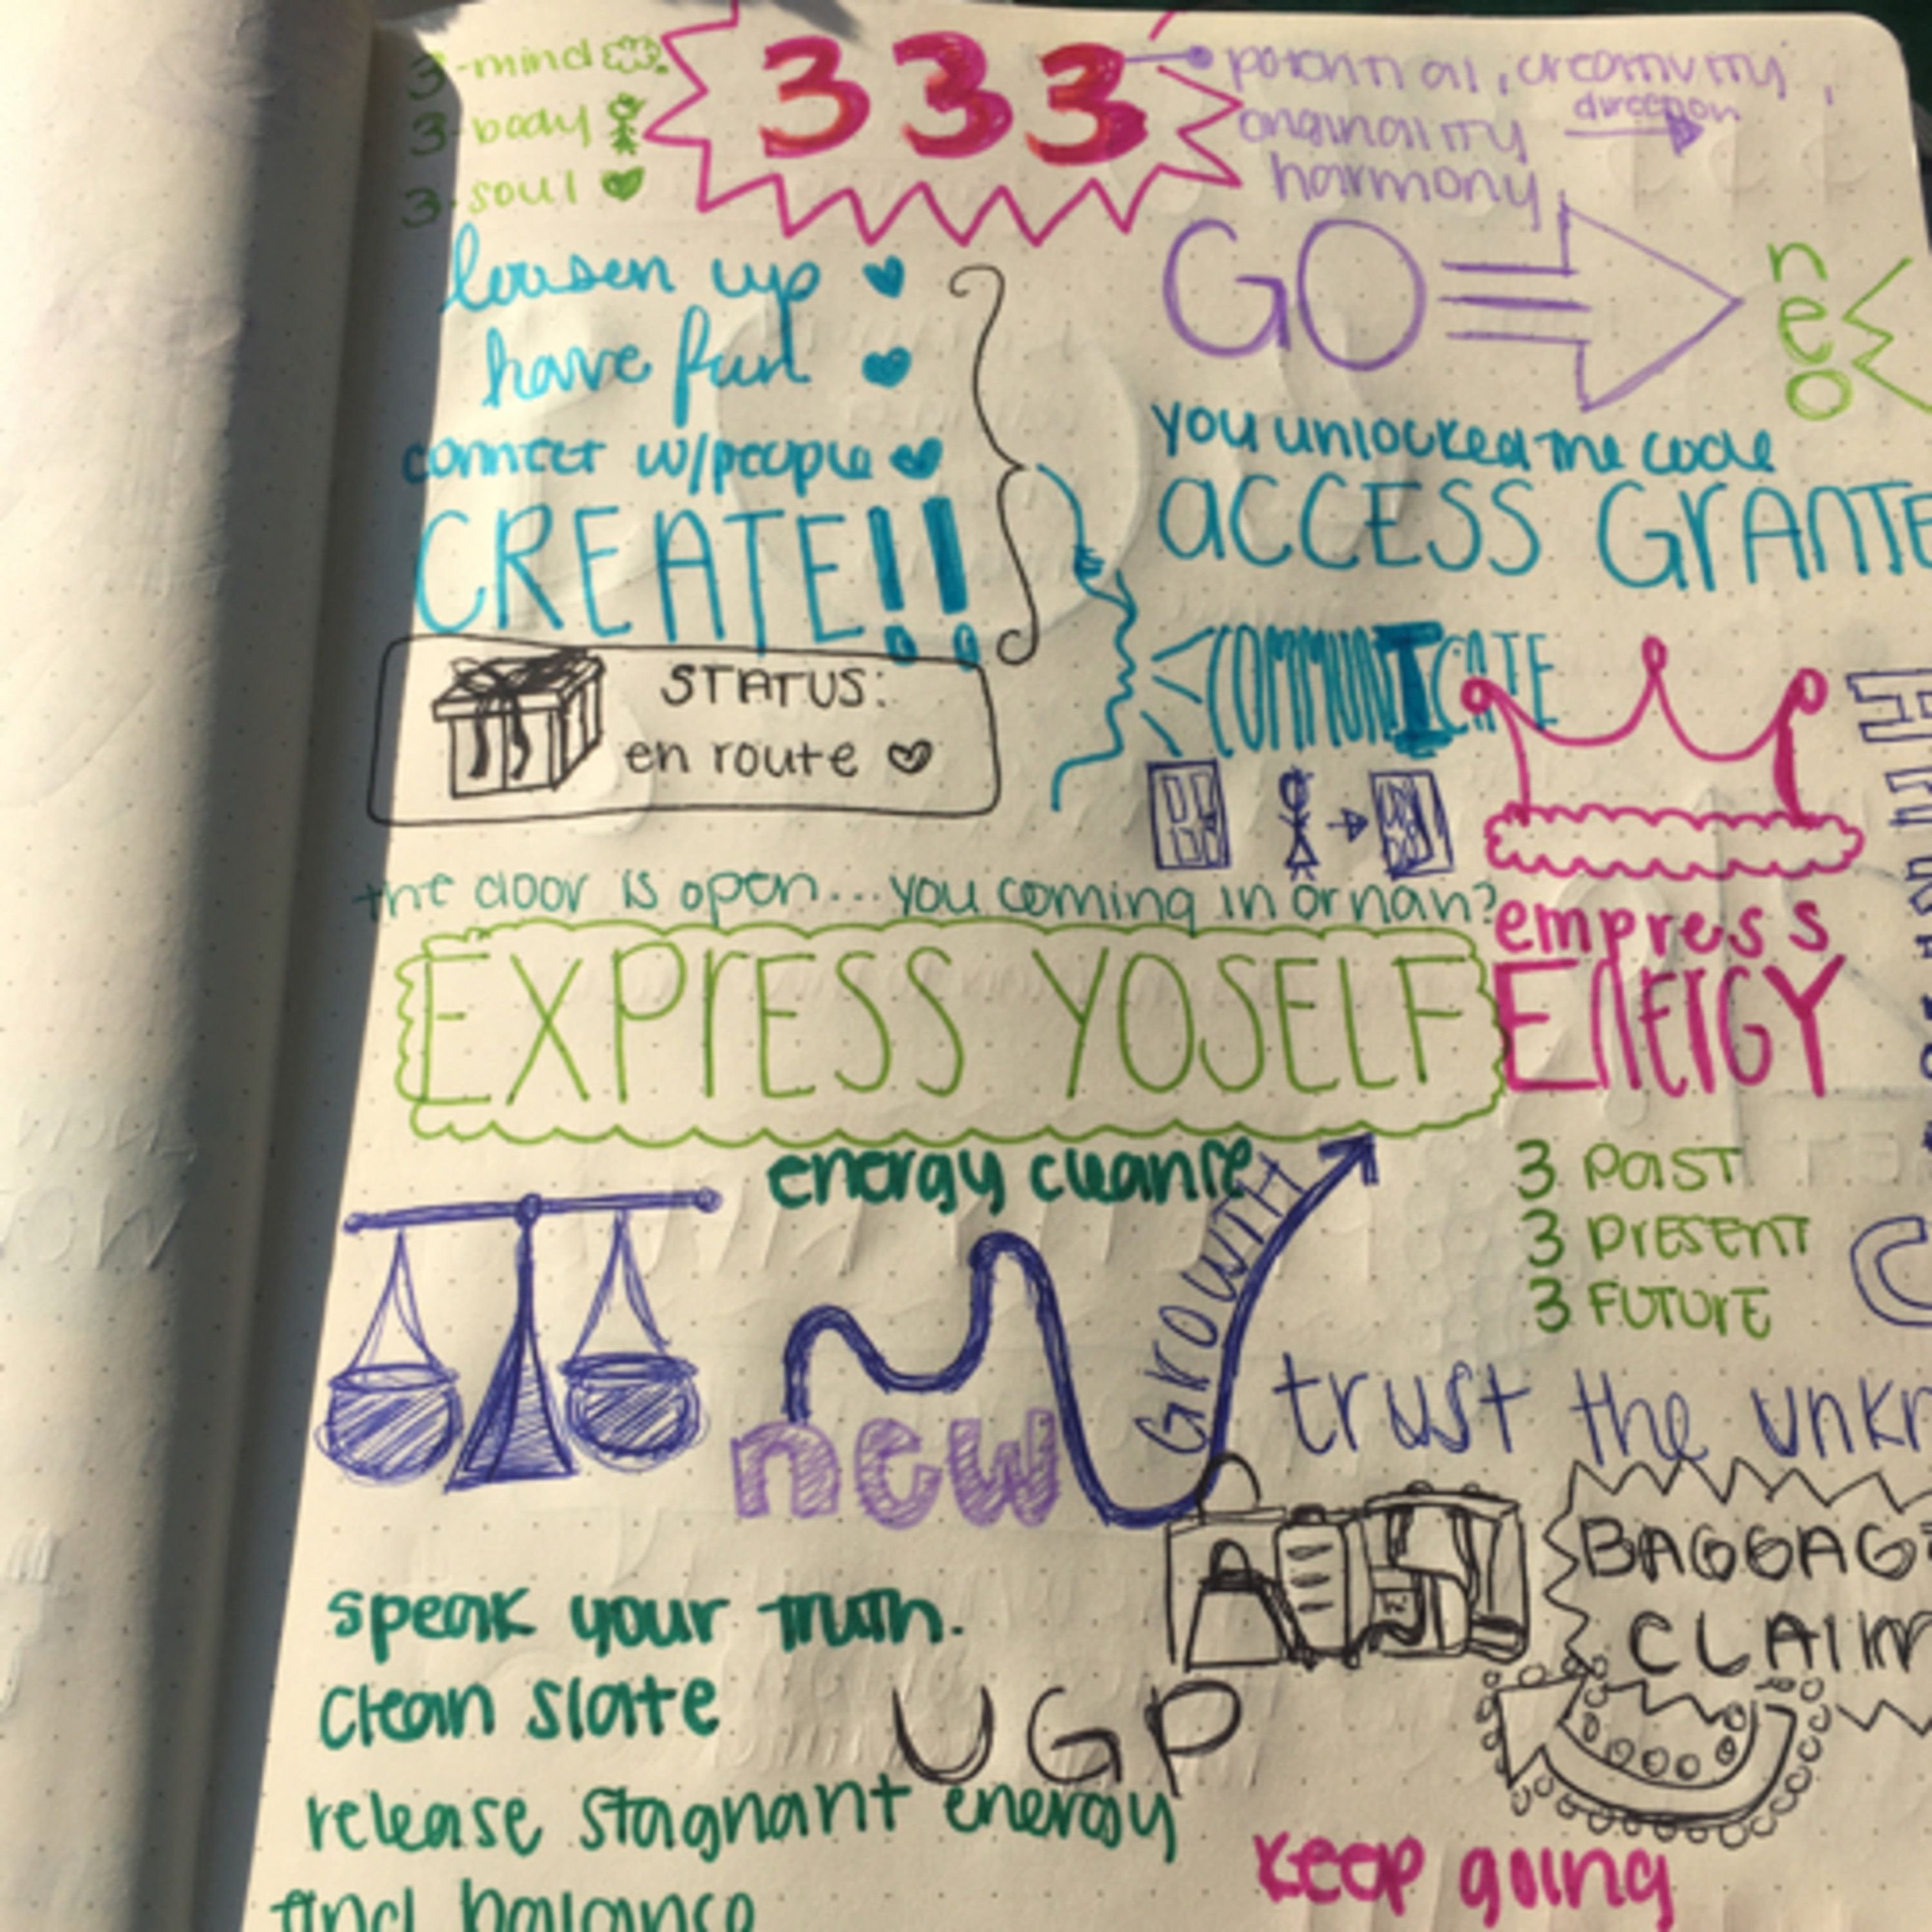 3-mind
3-body
3-soul
333
potential, creativity,
originality
direction
harmony
GO
neo
loosen up
have fun
connect w/people
CREATE!!
you unlocked the code
ACCESS GRANTE
COMMUNICATE
STATUS:
en route
the door is open...you coming in or nah?
EXPRESS YOSELF
empress
ENERGY
energy cleanse
GROWTH
new
3 PAST
3 PRESENT
3 FUTURE
trust the unkn
BAGGAGE
CLAIM
speak your truth.
clean slate
UGP
release stagnant energy
find balance
keep going